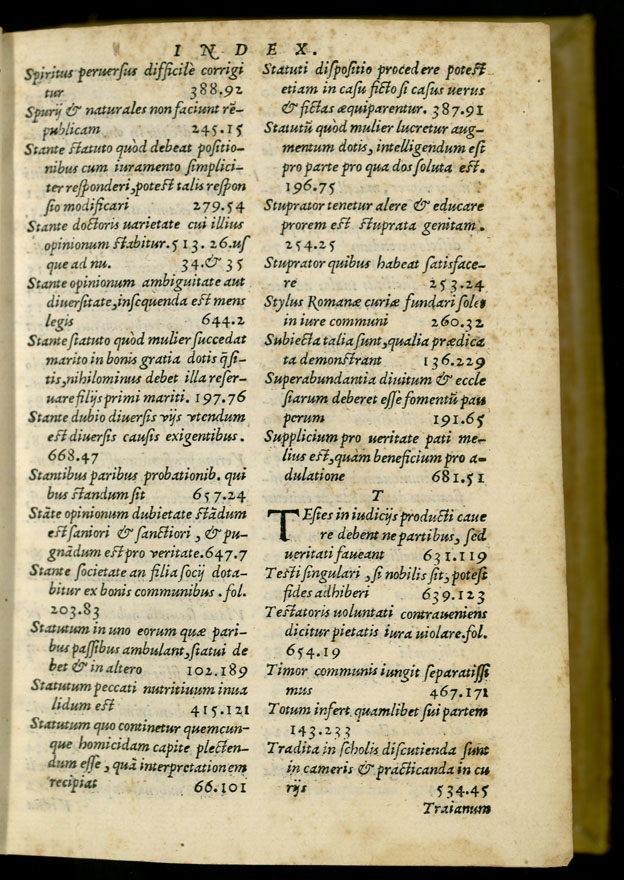 INDEX.
Spiritus peruersus difficilè corrigi
tur 388.92
Spurij & naturales non faciunt rē-
publicam 245.15
Stante statuto quòd debeat positio-
nibus cum iuramento simplici-
ter responderi, potest talis respon
sio modificari 279.54
Stante doctoris uarietate cui illius
opinionum stabitur. 513. 26. us
que ad nu. 34. & 35
Stante opinionum ambiguitate aut
diuersitate, insequenda est mens
legis 644.2
Stante statuto quòd mulier succedat
marito in bonis gratia dotis q̃si-
tis, nihilominus debet illa reser-
uare filijs primi mariti. 197.76
Stante dubio diuersis vijs vtendum
est diuersis causis exigentibus.
668.47
Stantibus paribus probationib. qui
bus standum sit 657.24
Stāte opinionum dubietate stādum
est saniori & sanctiori, & pu-
gnādum est pro veritate. 647.7
Stante societate an filia socij dota-
bitur ex bonis communibus. fol.
203.83
Statutum in uno eorum quæ pari-
bus passibus ambulant, statui de
bet & in altero 102.189
Statutum peccati nutritiuum inua
lidum est 415.121
Statutum quo continetur quemcun-
que homicidam capite plecten-
dum esse, quā interpretationem
recipiat 66.101
Statuti dispositio procedere potest
etiam in casu ficto si casus uerus
& fictas æquiparentur. 387.91
Statutū quòd mulier lucretur aug-
mentum dotis, intelligendum est
pro parte pro qua dos soluta est.
196.75
Stuprator tenetur alere & educare
prorem est stuprata genitam.
254.25
Stuprator quibus habeat satisface-
re 253.24
Stylus Romanæ curiæ fundari solet
in iure communi 260.32
Subiecta talia sunt, qualia prædica
ta demonstrant 136.229
Superabundantia diuitum & eccle
siarum deberet esse fomentū pau
perum 191.65
Supplicium pro ueritate pati me-
lius est, quàm beneficium pro a-
dulatione 681.51
T
TEstes in iudicijs producti caue
re debent ne partibus, sed
ueritati faueant 631.119
Testi singulari, si nobilis sit, potest
fides adhiberi 639.123
Testatoris uoluntati contraueniens
dicitur pietatis iura uiolare. fol.
654.19
Timor communis iungit separatissi
mus 467.171
Totum infert quamlibet sui partem
143.233
Tradita in scholis discutienda sunt
in cameris & practicanda in cu
rijs 534.45
Traianum